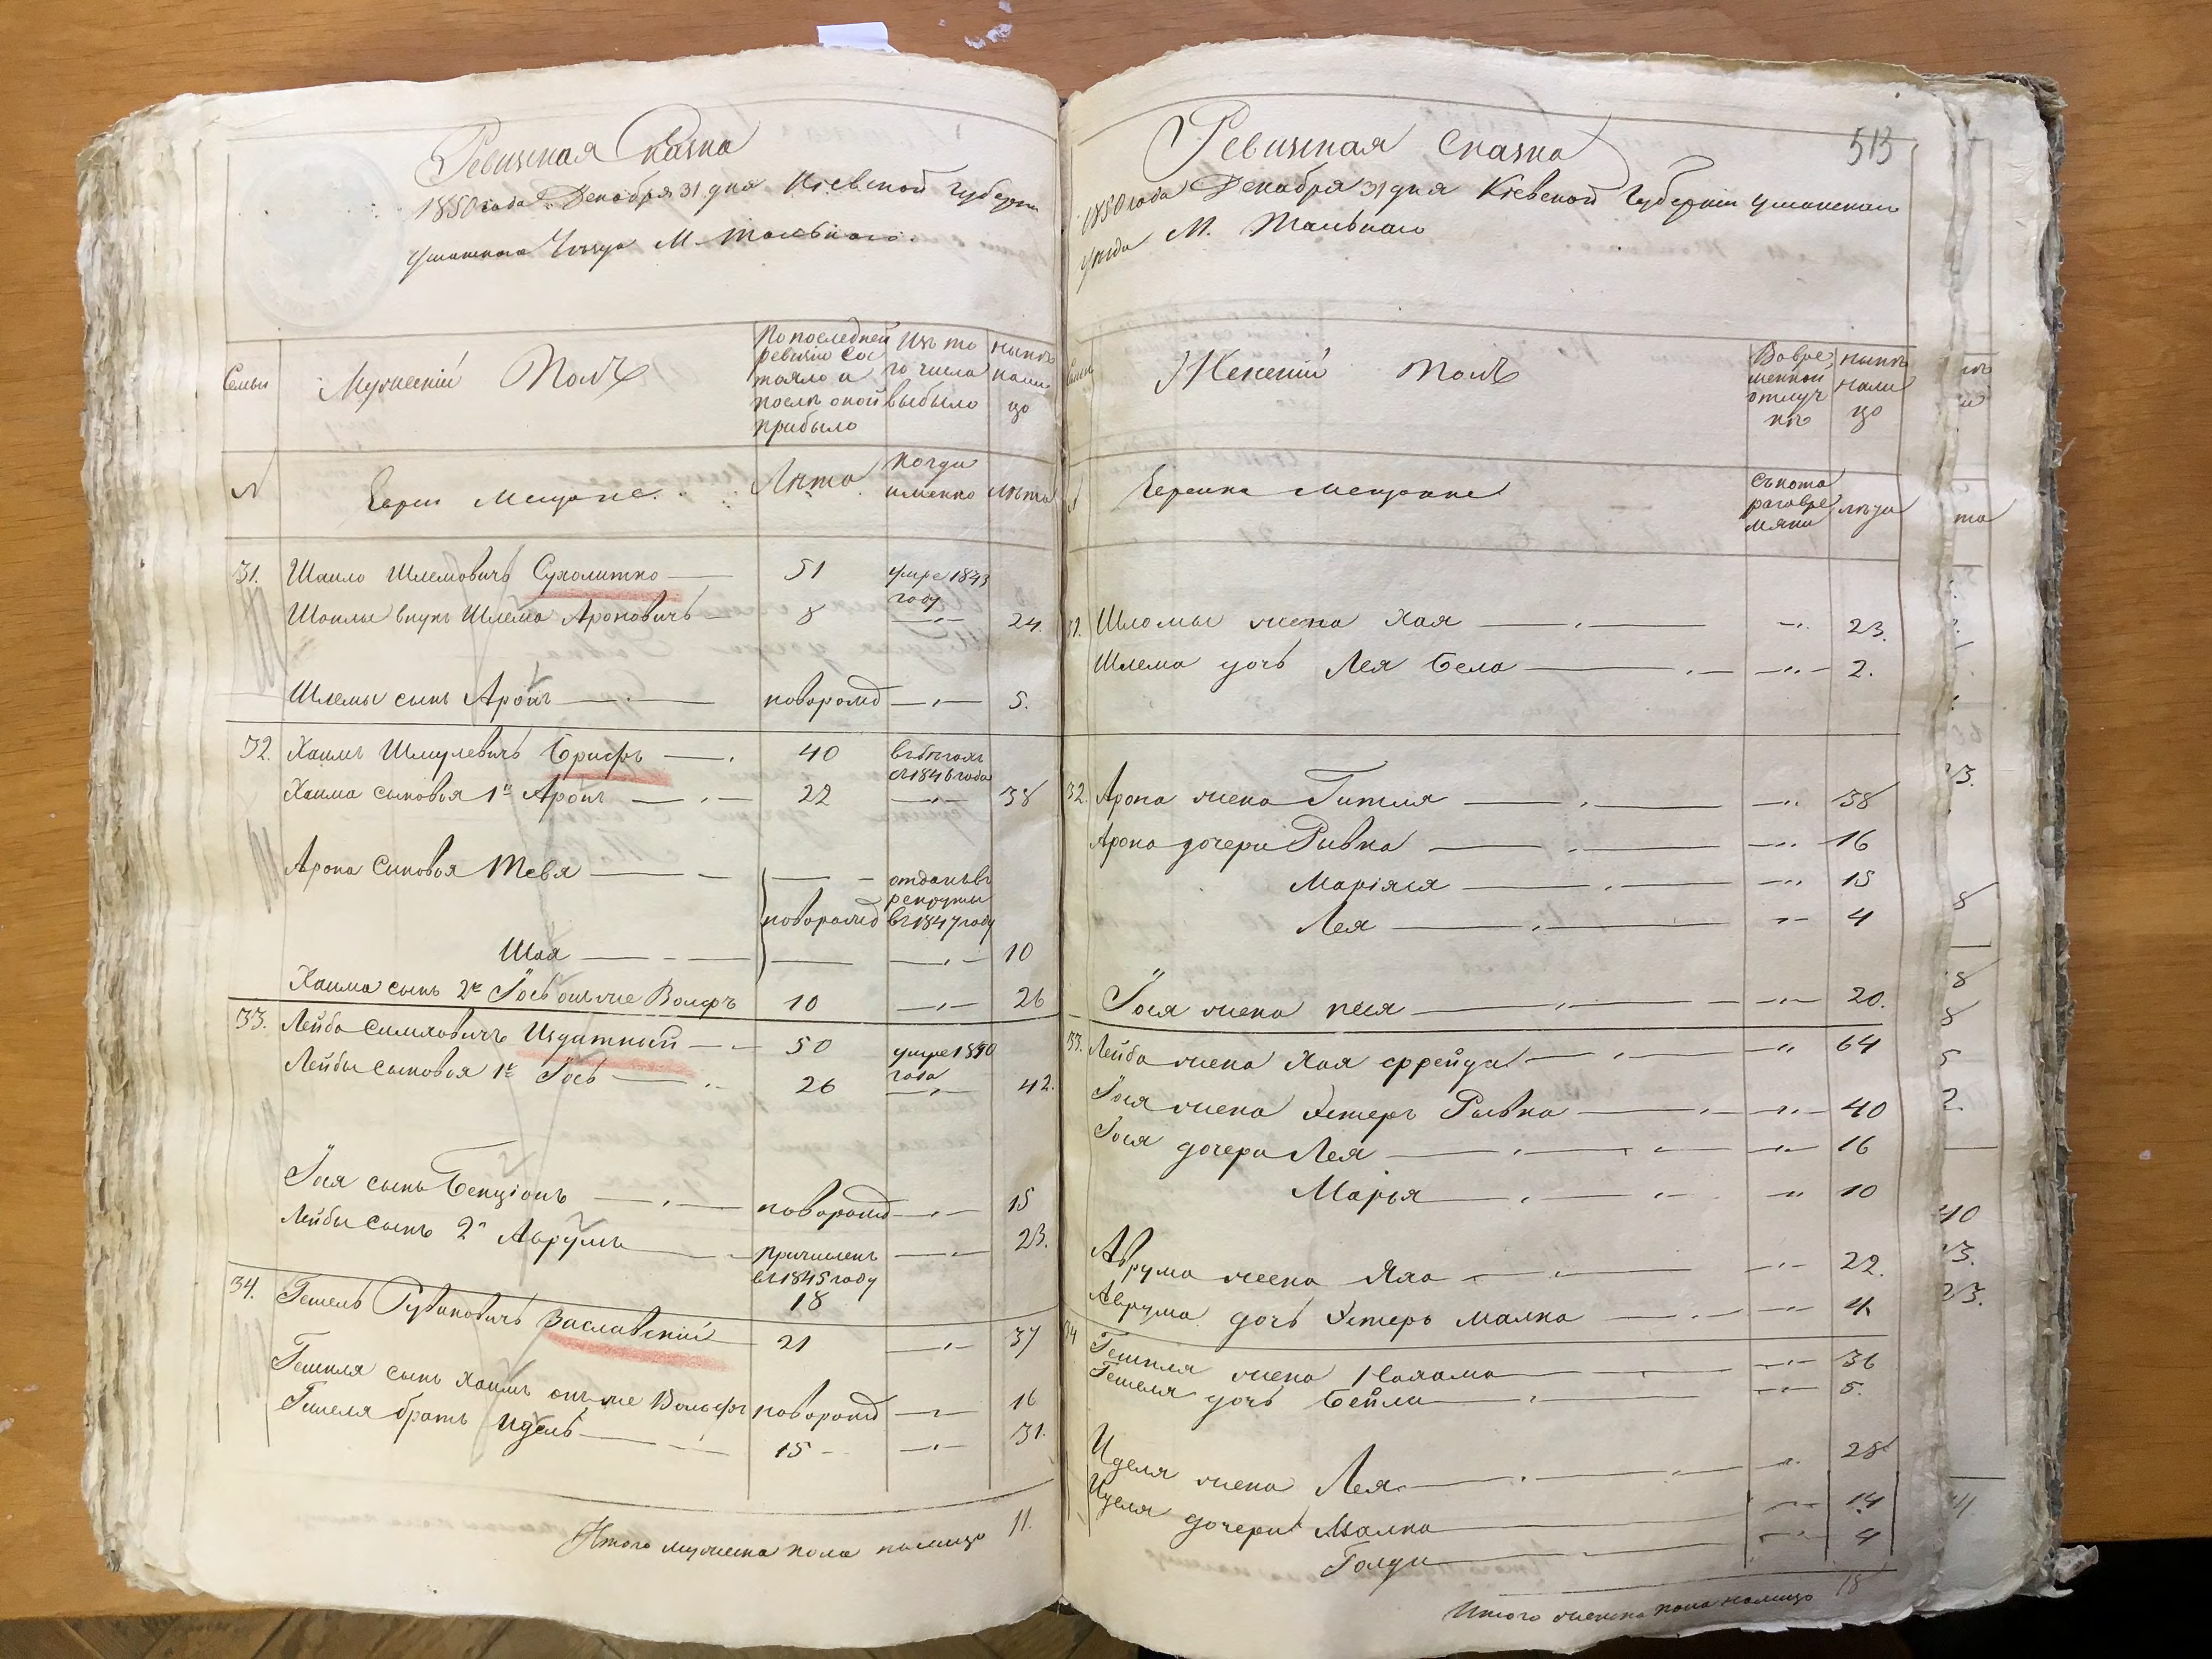 Ревизская Сказка
1850 года Декабря 31 дня Кіевской Губерніи
Уманскаго Уезда М. Тальнаго.
Семьи
Мужескій Полъ
По последней
ревизіи Сос
тояло и
после оной
прибыло
Изъ то
го числа
выбыло
ныне
нали
цо
№
Евреи Мещане.
Лѣта
Когда
именно
Лѣта
31. Шаило Шлемовичъ Сухолитко 51 умре 1843
году
Шаилы внукъ Шлема Ароновичъ 8 24.
Шлемы сынъ Аронъ новорожд 5.
32. Хаимъ Шмулевичъ Брифъ 40 въ бегахъ
съ 1846 года
Хаима сыновья 1й Аронъ 22 38
Арона Сыновья Тевя отданъ въ
рекруты
новорожд въ 1847 году
Шая 10
Хаима сынъ 2й Іось онъ же Волфъ 10 26
33. Лейба Симховичъ Издатный 50 умре 1850
года
Лейбы сыновья 1й Іось 26 42.
Іося сынъ Бенціонъ новорожд 15
Лейбы сынъ 2й Аврумъ причисленъ 23.
въ 1845 году
18
34. Гешель Рувиновичъ Заславскій 21 37
Гешеля сынъ Хаимъ онъ же Вольфъ новорожд 16
Гешеля братъ Идель 15 31.
Итого мужеска пола налицо 11.
513
Ревизская Сказка
1850 года Декабря 31 дня Кіевской Губерніи Уманскаго
уезда М. Тальнаго
Женскій полъ
Вовре
менной
отлуч
кѣ
ныне
нали
цо
Евреики мещанки
Съ кото
раго вре
мяни
лѣта
31. Шломы жена Хая 23.
Шлема дочь Лея Бела 2.
32. Арона жена Гитля 38
Арона дочери Ривка 16
Маріяся 15
Лея 4
Іося жена песя 20.
33. Лейба жена Хая фрейда 64
Іося жена Эстеръ Рывка 40
Іося дочери Лея 16
Марья 10
Аврума жена Хая 22.
Аврума дочь Эстеръ Малка 4
34 Гешеля жена Нахама 36
Гешеля дочь Бейла 5.
Иделя жена Лея 28
Иделя дочери Малка 14
Голда 4
Итого женска пола налицо 18